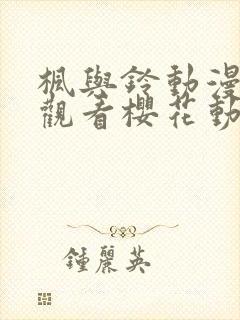 楓與鈴動漫
觀看櫻花動
鍾麗英